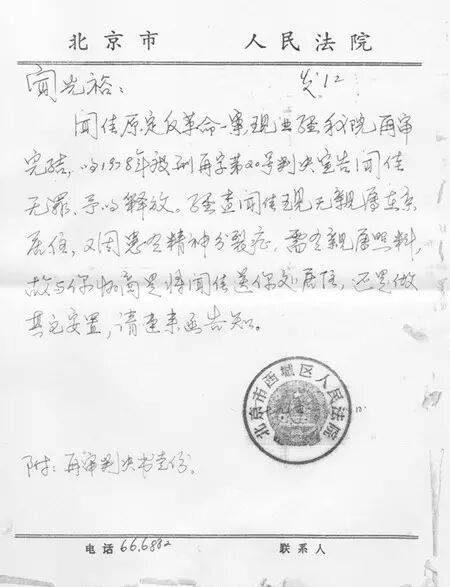 北京市 人民法院
闻光裕： 发12
闻佳原定反革命一案，现业经我院再审
完结，以1978年 刑再字第20号判决宣告闻佳
无罪、予以释放。经查闻佳现无亲属在京
居住，又因患有精神分裂症，需有亲属照料，
故与你协商是将闻佳送你处居住，还是做
其它安置，请速来函告知。
北京市西城区人民法院
附：再审判决书壹份。
电话 66.6882 联系人